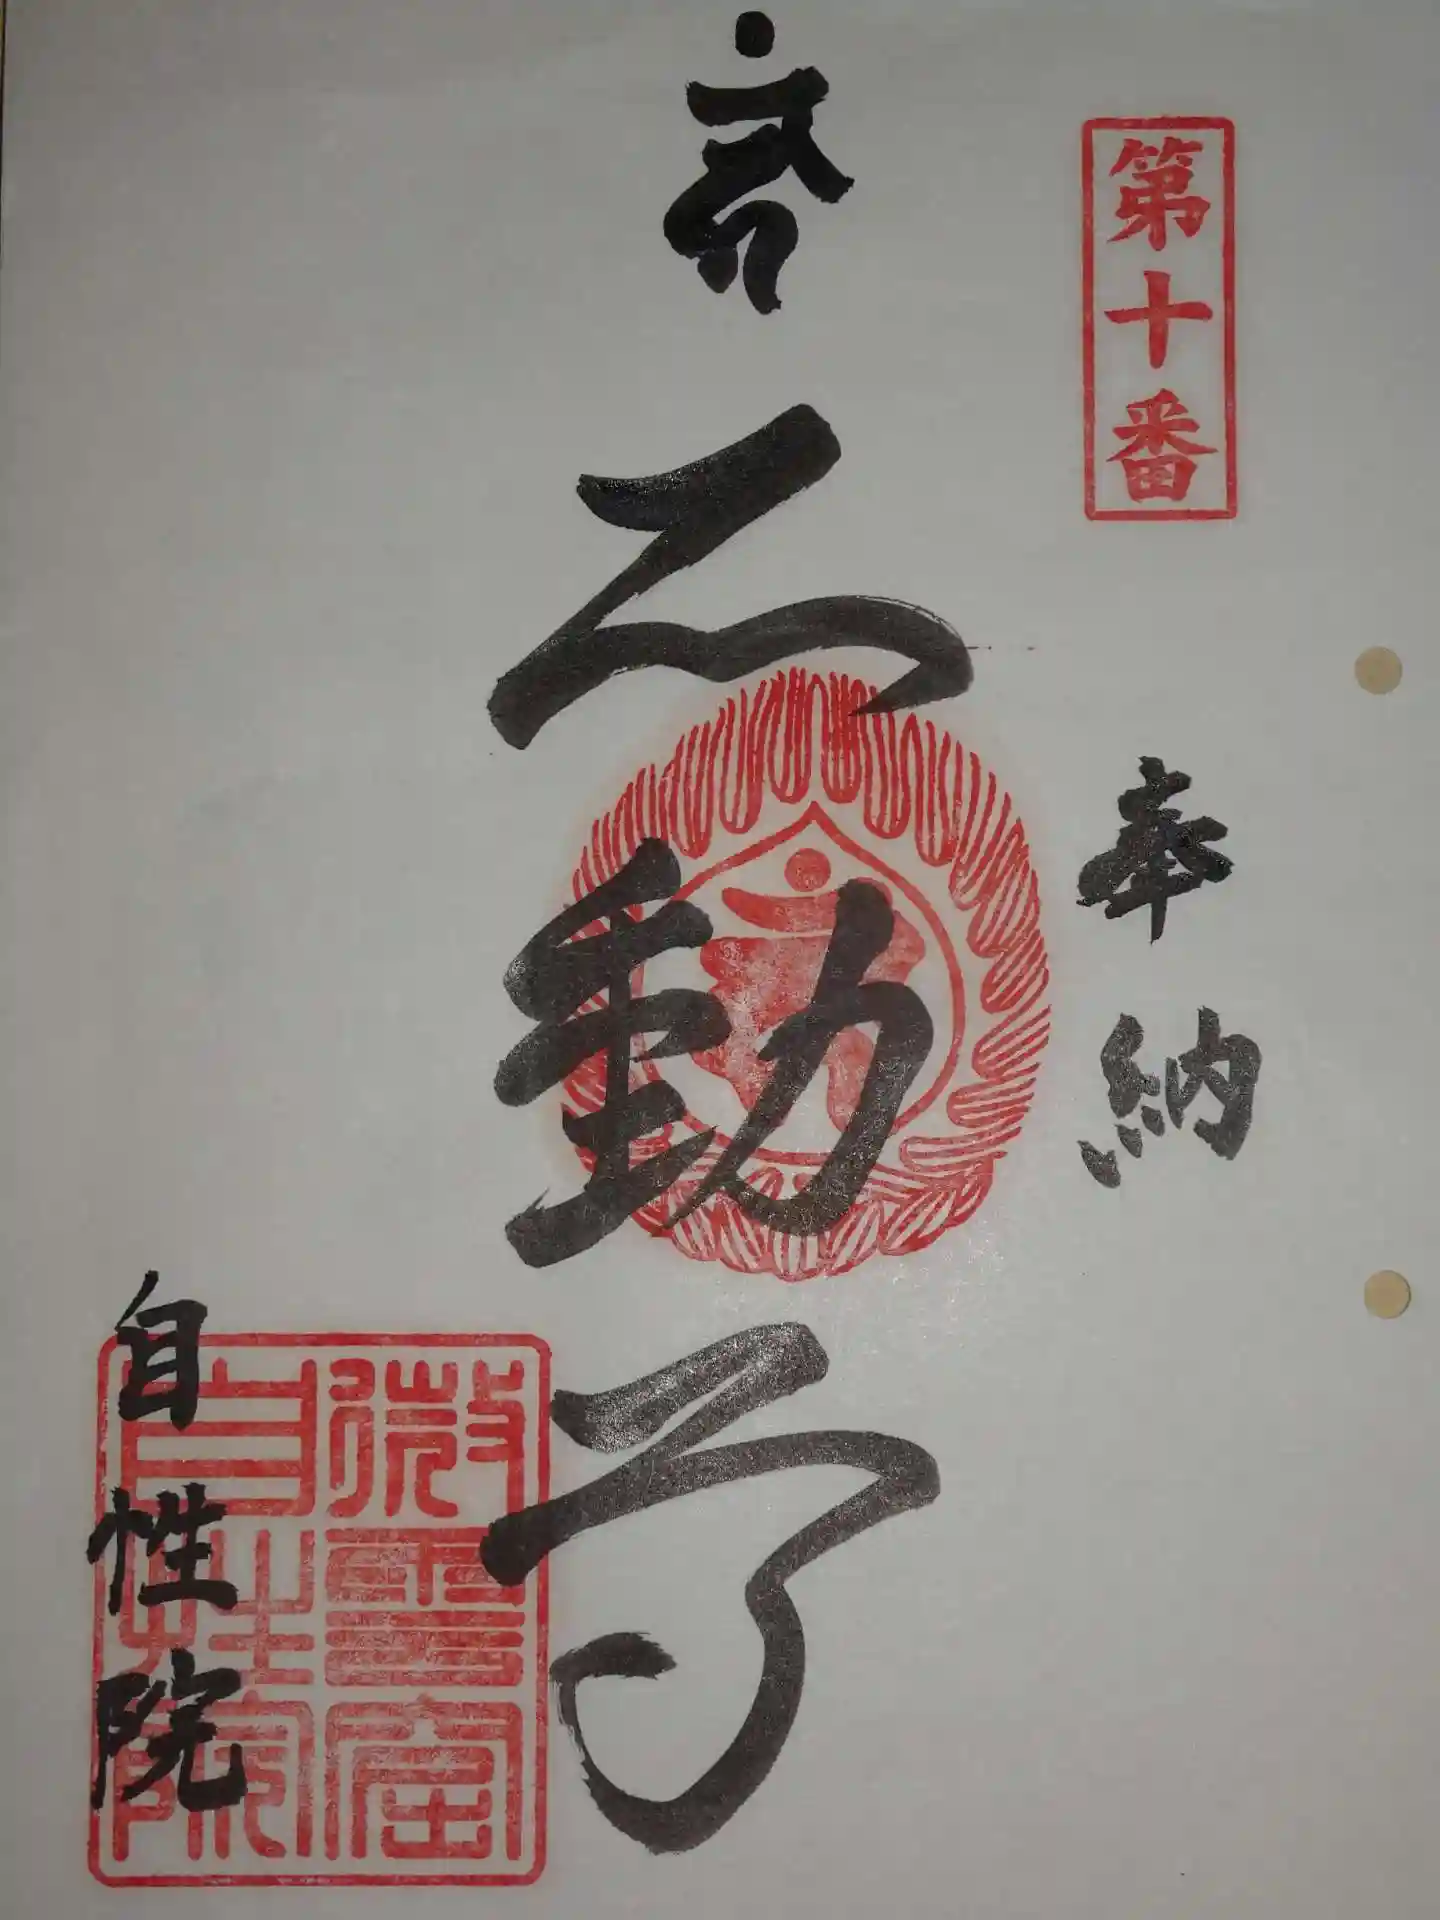 第十番
奉納
不動尊
自性院
微雲窟
自性院